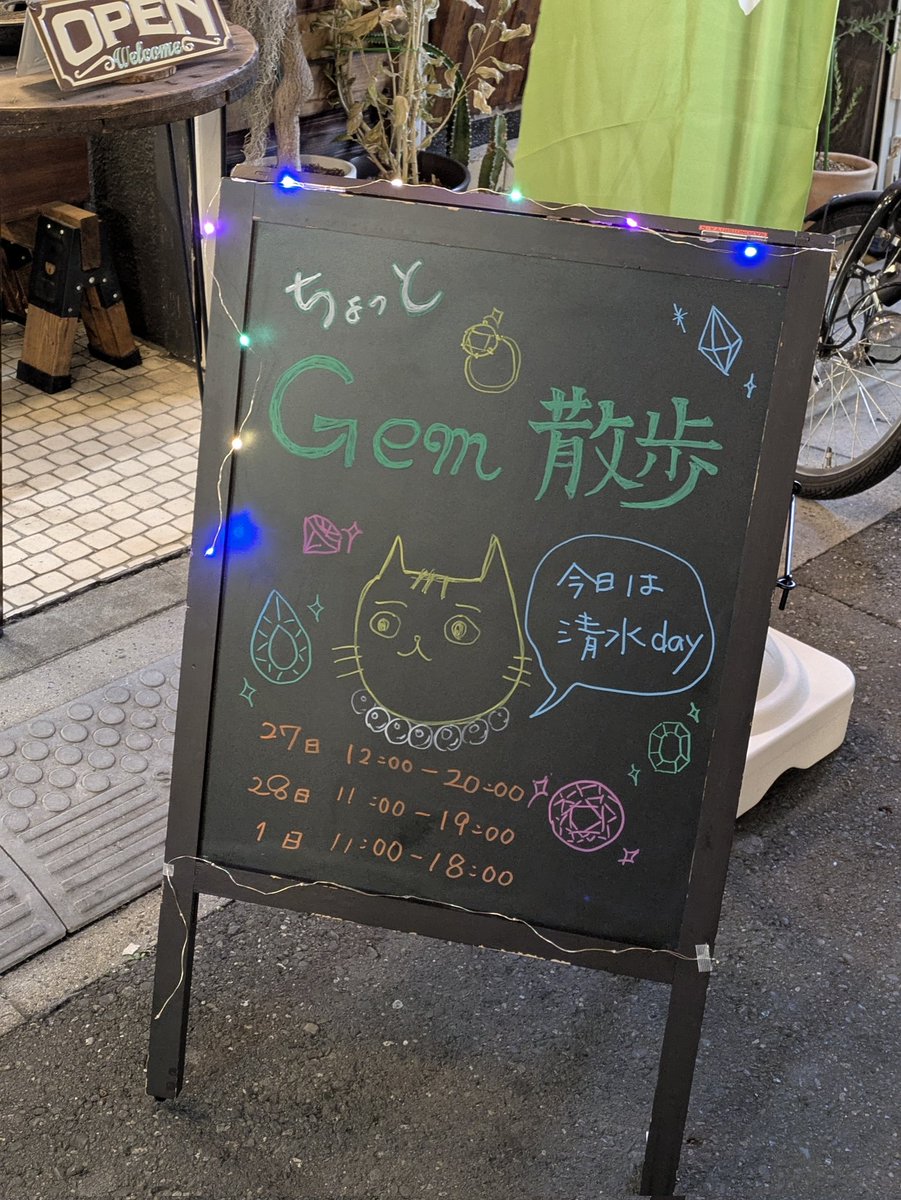 OPEN
Welcome
ちょっと
Gem 散歩
今日は
清水day
27日 12:00-20:00
28日 11:00-19:00
1日 11:00-18:00